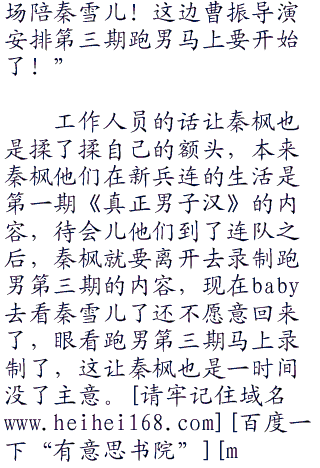 场陪秦雪儿！这边曹振导演
安排第三期跑男马上要开始
了！”
工作人员的话让秦枫也
是揉了揉自己的额头，本来
秦枫他们在新兵连的生活是
第一期《真正男子汉》的内
容，待会儿他们到了连队之
后，秦枫就要离开去录制跑
男第三期的内容，现在baby
去看秦雪儿了还不愿意回来
了，眼看跑男第三期马上录
制了，这让秦枫也是一时间
没了主意。[请牢记住域名
www.heihei168.com][百度一
下“有意思书院”][m